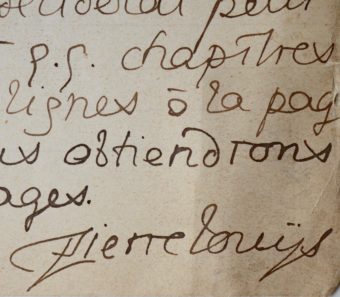 peur
chapitres
lignes à la pag
us obtiendrons
ages.
Pierre Louÿs